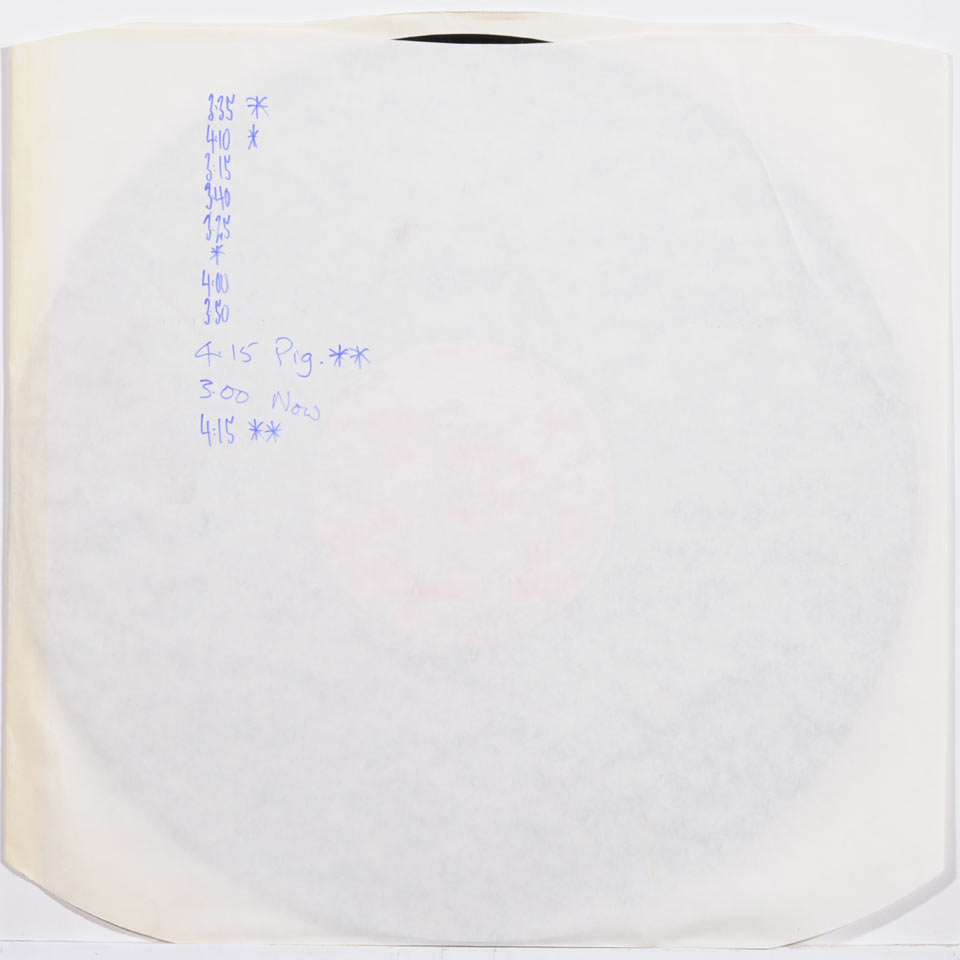 3:35 *
4:10 *
3:15
3:40
3:25
*
4:00
3:50
4:15 Pig. **
3:00 Now
4:15 **